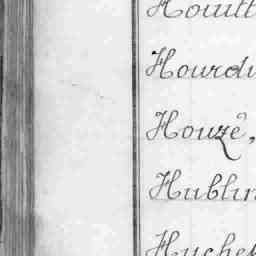 Houitt
Hourdu
Houzé,
Hublin
Huchet